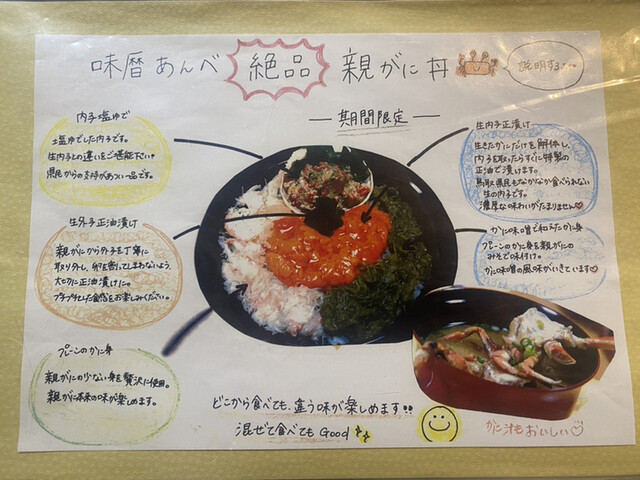 味暦あんべ 絶品 親がに丼
説明するよ…
― 期間限定 ―
内子塩ゆで
土塩ゆでした内子です。
生内子との違いをご堪能下さい。
県民からの支持があつい一品です。
生外子正油漬け
親がにから外子を丁寧に
取り外し、卵を割ってしまわないよう、
大切に正油漬けに。
プチプチした食感をお楽しみください。
プレーンのかに身
親がにの少ない身を贅沢に使用。
親がに本来の味が楽しめます。
生内子正油漬け
生きたかにだけを解体し、
内子を取ったらすぐに特製の
正油で漬けます。
鳥取県民もなかなか食べられない
生の内子です。
濃厚な味わいがたまりません♡
かに味噌で和えたかに身
プレーンのかに身を親がにの
みそで味付け。
かに味噌の風味がいきています♡
どこから食べても、違う味が楽しめます!!
混ぜて食べても Good
かに汁もおいしい♡